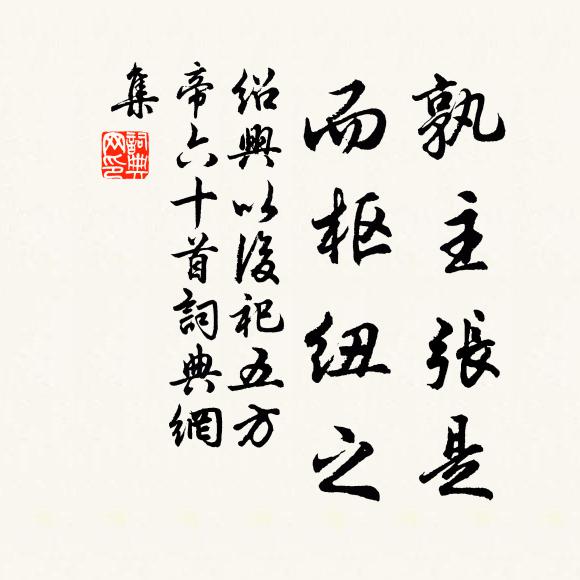 孰主張是
而枢紐之
紹興以後祀五方
帝六十首詞典網
集
詞典
网印